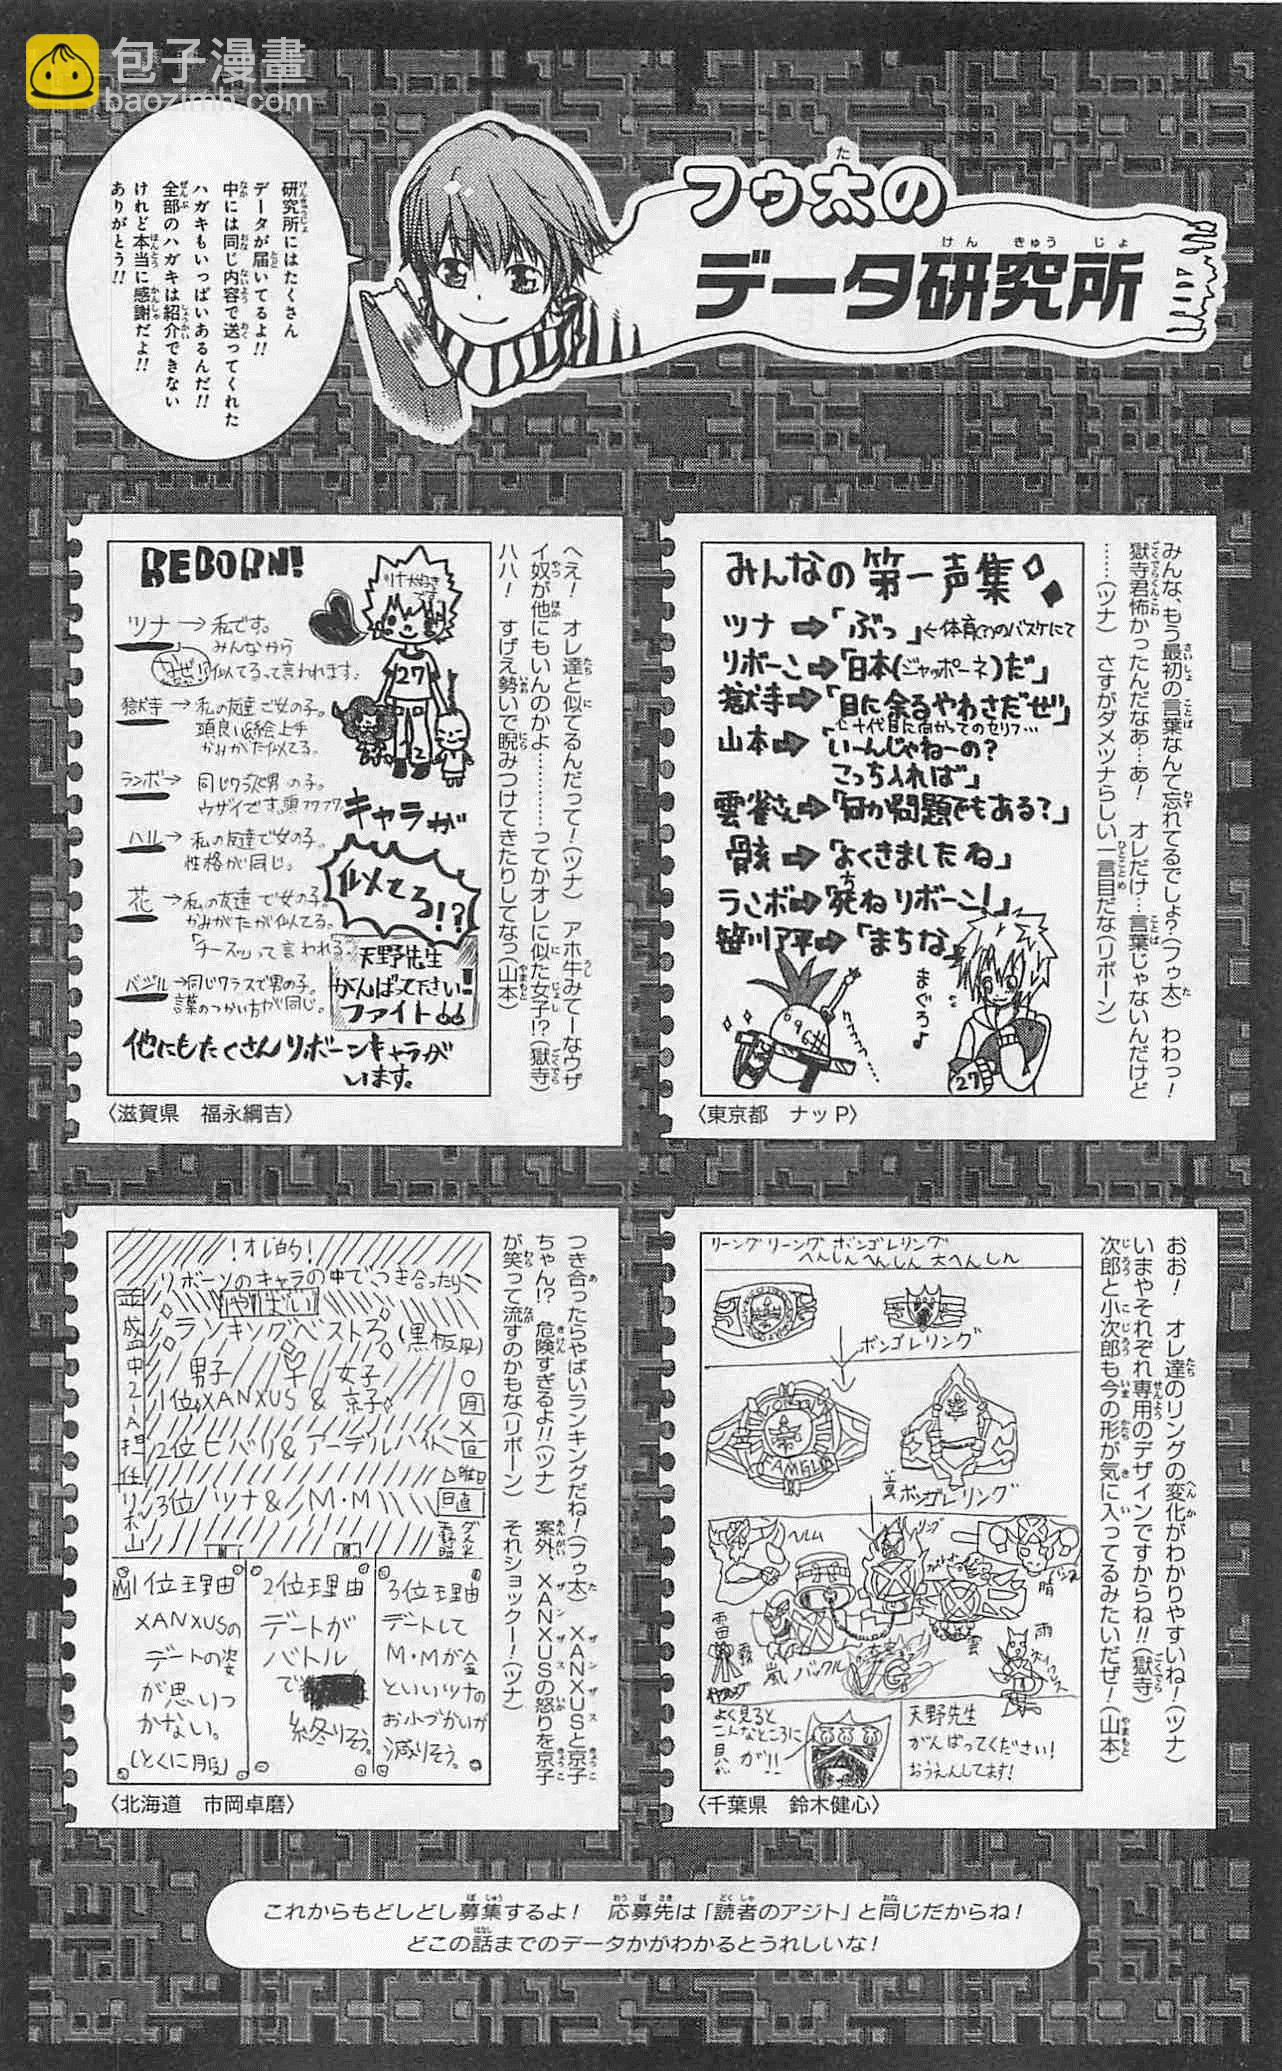 包子漫畫
baozimh.com
フゥ太の
データ研究所
研究所にはたくさん
データが届いてるよ!!
中には同じ内容で送ってくれた
ハガキもいっぱいあるんだ!!
全部のハガキは紹介できない
けれど本当に感謝だよ!!
ありがとう!!
みんな、もう最初の言葉なんて忘れてるでしょ?(フゥ太) わわっ!
獄寺君怖かったんだなあ…あ! オレだけ…言葉じゃないんだけど
……(ツナ) さすがダメツナらしい一言目だな(リボーン)
みんなの第一声集
ツナ➡「ぶっ」←体育(?)のバスケにて
リボーン➡「日本(ジャッポーネ)だ」
獄寺➡「目に余るやわさだぜ」
十代目に向かってのセリフ…
山本➡「いーんじゃねーの?
こっち入れば」
雲雀さん➡「何か問題でもある?」
骸➡「よくきましたね」
ランボ➡「死ねリボーン!」
笹川了平➡「まちな
まぐろよ
27
〈東京都 ナッP〉
へえ! オレ達と似てるんだって!(ツナ) アホ牛みてーなウザ
イ奴が他にもいんのかよ…………ってかオレに似た女子!?(獄寺)
ハハ! すげえ勢いで睨みつけてきたりしてなっ(山本)
REBORN!
27
ツナ→私です。
みんなから
なぜ!?似てるって言われます。
獄寺→私の友達で女の子。
頭良い&絵上手
かみがた似てる。
ランボ→同じクラスで男の子。
ウザイです。頭フワフワ。
ハル→私の友達で女の子。
性格が同じ。
花→私の友達で女の子
かみがたが似てる。
「チースッ」って言われる。
バジル→同じクラスで男の子。
言葉のつかい方が同じ。
キャラが
似てる!?
天野先生
がんばって下さい!
ファイト
他にもたくさんリボーンキャラが
います。
〈滋賀県 福永綱吉〉
おお! オレ達のリングの変化がわかりやすいね!(ツナ)
いまやそれぞれ専用のデザインですからね!!(獄寺)
次郎と小次郎も今の形が気に入ってるみたいだぜ!(山本)
リーングリーングボンゴレリング
へんしんへんしん大へんしん
ボンゴレリング
真ボンゴレリング
ヘルム
リング
晴
雷
霧
嵐
バックル
雲
雨
よく見ると
こんなところに
目が!!
天野先生
がんばってください!
おうえんしてます!
〈千葉県 鈴木健心〉
つき合ったらやばいランキングだね!(フゥ太) XANXUSと京子
ちゃん!? 危険すぎるよ!!(ツナ) 案外、XANXUSの怒りを京子
が笑って流すのかもな(リボーン) それショックー!(ツナ)
!オレ的!
リボーンのキャラの中で、つき合ったら
やばい
ランキングベスト3(黒板風)
男子 女子
1位 XANXUS & 京子
2位 ヒバリ & アーデルハイト
3位 ツナ & M・M
並盛中2-A担任リボ山
日直
1位理由
XANXUSの
デートの姿
が思いつ
かない。
(とくに服)
2位理由
デートが
バトル
で
終りそう。
3位理由
デートして
M・Mが金
といいツナの
おこづかいが
減りそう。
〈北海道 市岡卓磨〉
これからもどしどし募集するよ! 応募先は「読者のアジト」と同じだからね!
どこの話までのデータかがわかるとうれしいな!